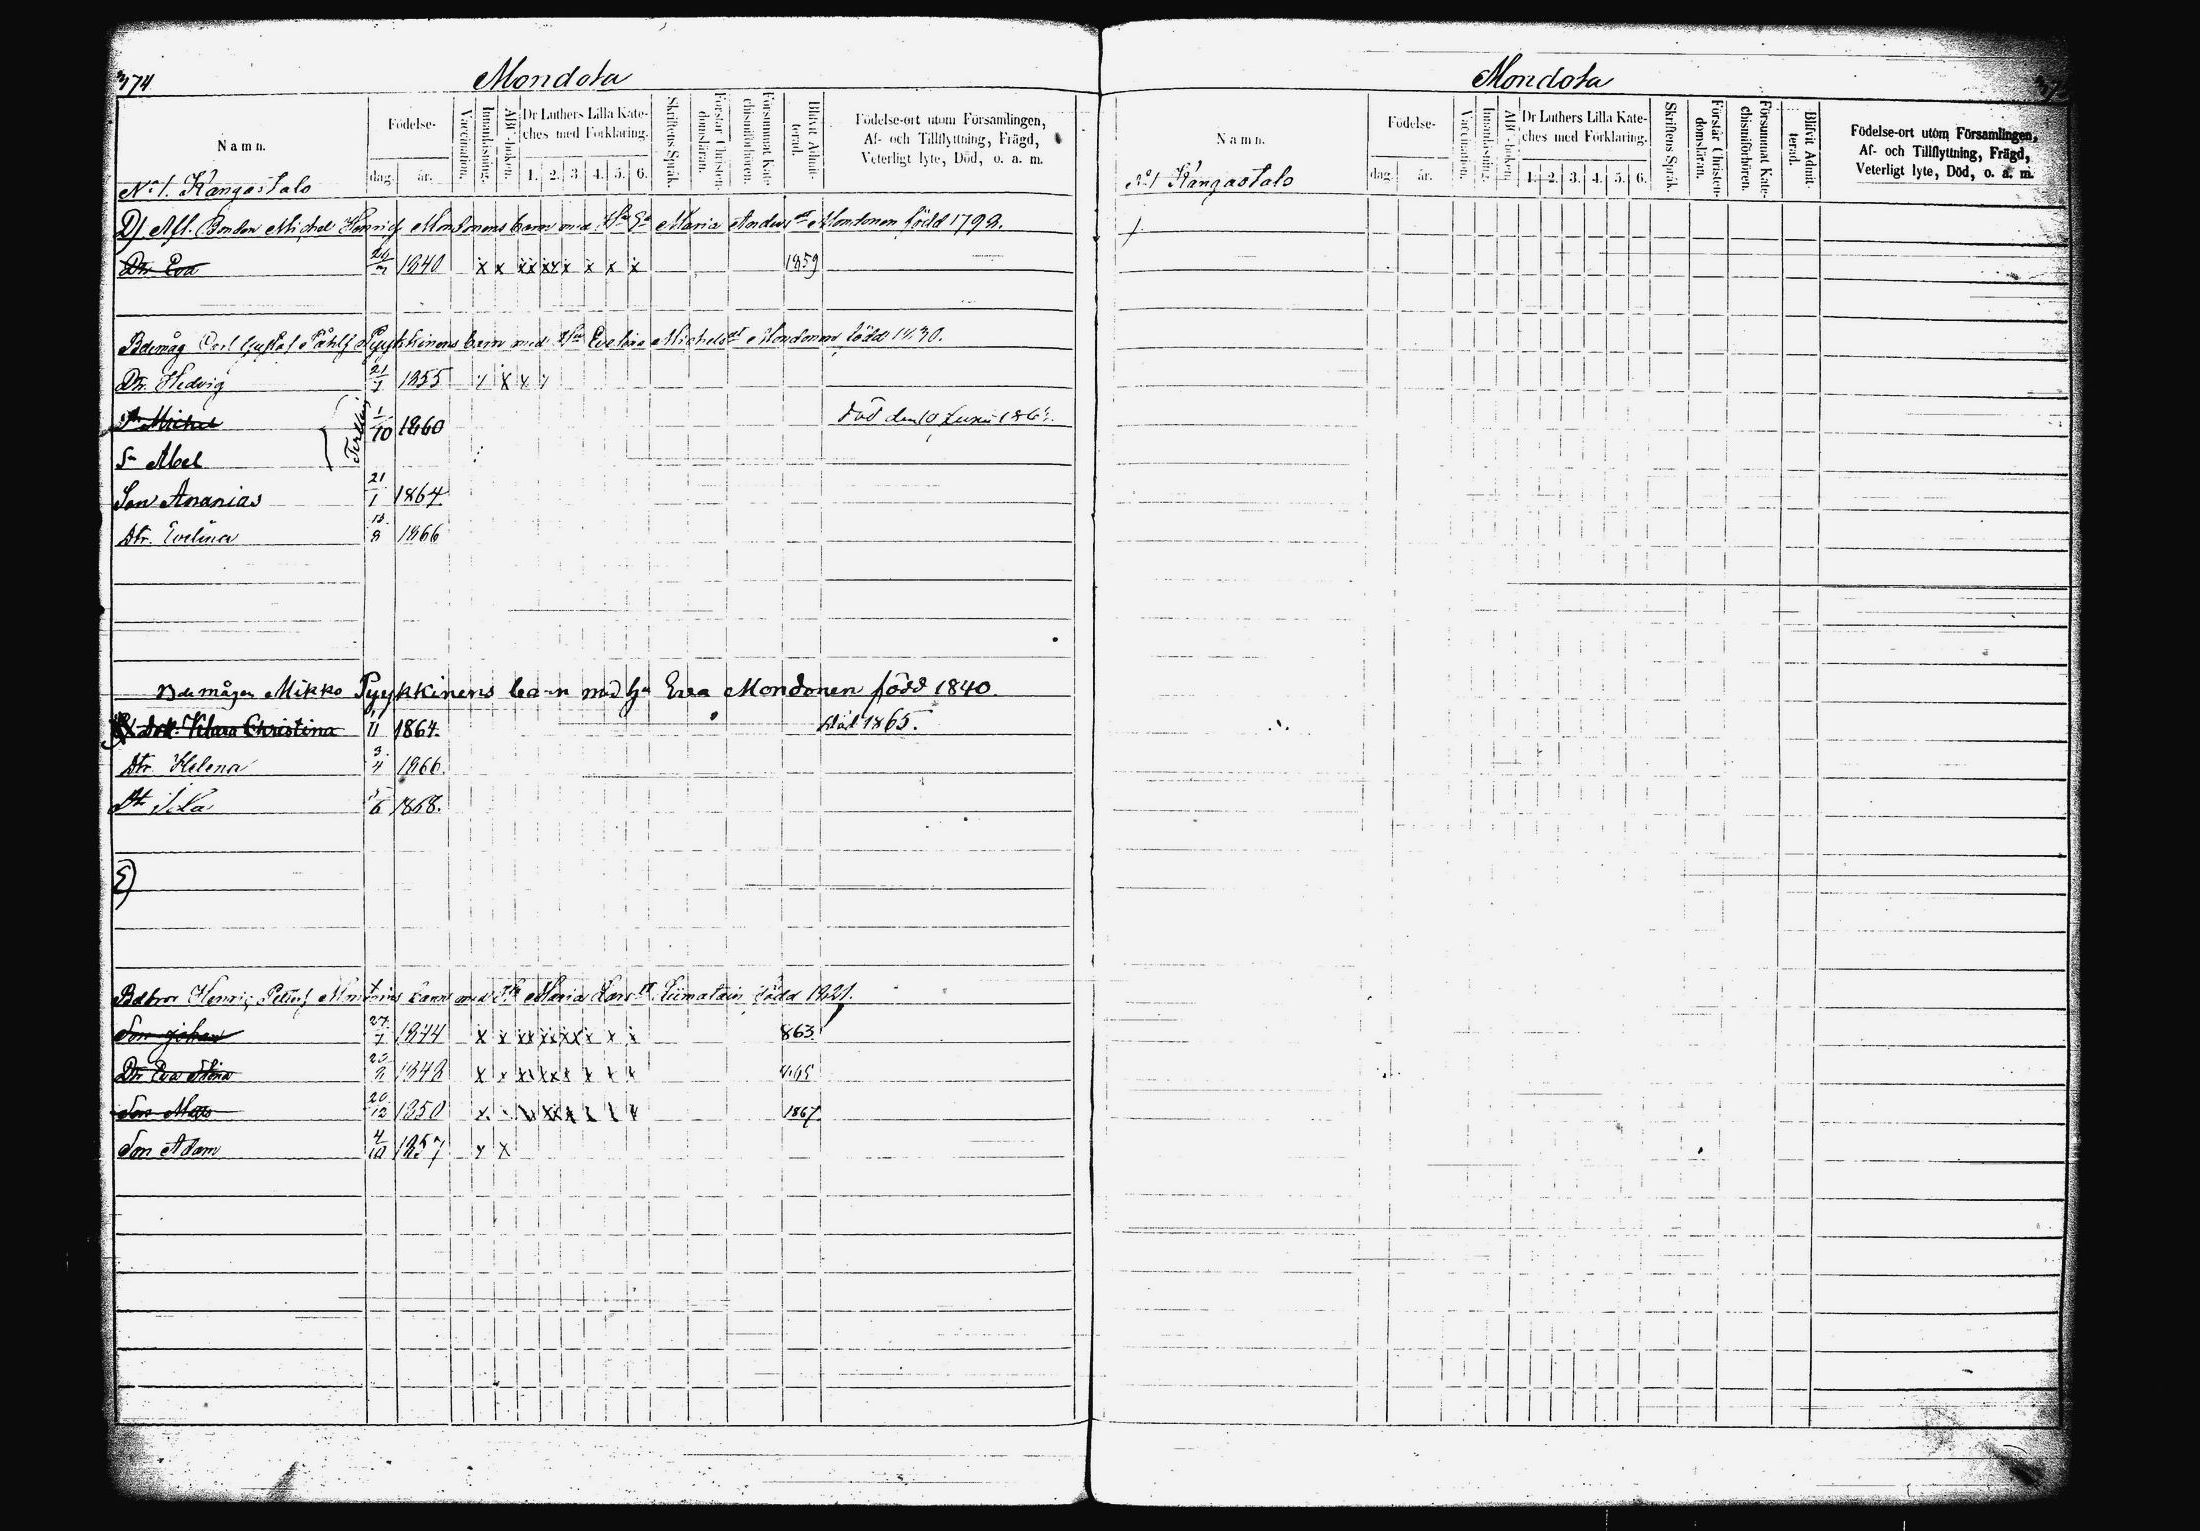 374
Mondola
Namn.
Födelse-
dag.
år.
Vaccination.
Innanläsning.
ABC-boken.
Dr Luthers Lilla Kate-
ches med Förklaring.
1. 2. 3. 4. 5. 6.
Skriftens Språk.
Förstår Christen-
domsläran.
Försummat Kate-
chismiförhören.
Blifvit Admit-
terad.
Födelse-ort utom Församlingen,
Af- och Tillflyttning, Frägd,
Veterligt lyte, Död, o. a. m.
No 1. Kangastalo
D) Afl. Bonden Michel Henrics Mondonens barn med Maria Andersdr Mondonen född 1792.
Dtr. Eva 1840 x x xx xx x x x x 1859
Bdemåg Carl Gustaf Påhls Pyykkinens barn med Evelina Michelsdr Mondonen född 1830.
Dtr. Hedvig 21/1 1855
Sn Michel 1/10 1860 död den 10 Junii
Sn Abel
Son Ananias 21/1 1864
Dtr. Evelina 1866
Bdemågen Mikko Pyykkinens barn med Hu Eva Mondonen född 1840.
Dtr. Klara Christina 11 1864. död 1865.
Dtr. Helena 3/4 1866.
Dtr 6 1868.
E)
Bdbror Henric Petters barn med Maria Larsdr Liimatain född 1821.
Son Johan 27 1844 863
Dtr Eva Stina 1848
Son Mats 20/12 1850 1867.
Son Adam 4/10 1857
Mondola
Namn.
Födelse-
dag.
år.
Vaccination.
Innanläsning.
ABC-boken.
Dr Luthers Lilla Kate-
ches med Förklaring.
1. 2. 3. 4. 5. 6.
Skriftens Språk.
Förstår Christen-
domsläran.
Försummat Kate-
chismiförhören.
Blifvit Admit-
terad.
Födelse-ort utom Församlingen,
Af- och Tillflyttning, Frägd,
Veterligt lyte, Död, o. a. m.
No 1 Kangastalo